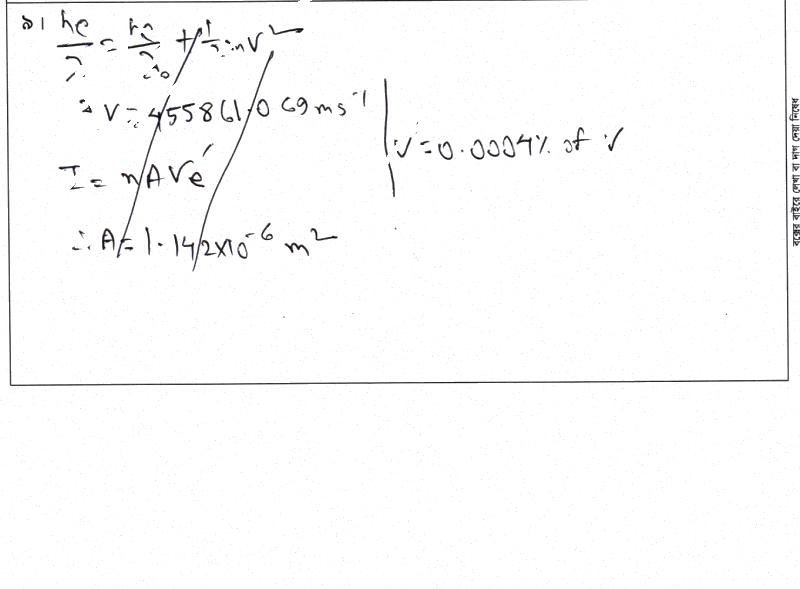 ৯। hc/λ = hc/λ₀ + 1/2 mv²
∴ V = 455861.069 ms⁻¹
I = nAVe
∴ A = 1.142×10⁻⁶ m²
V' = 0.0004% of V
বক্সের বাইরে লেখা বা দাগ দেয়া নিষেধ